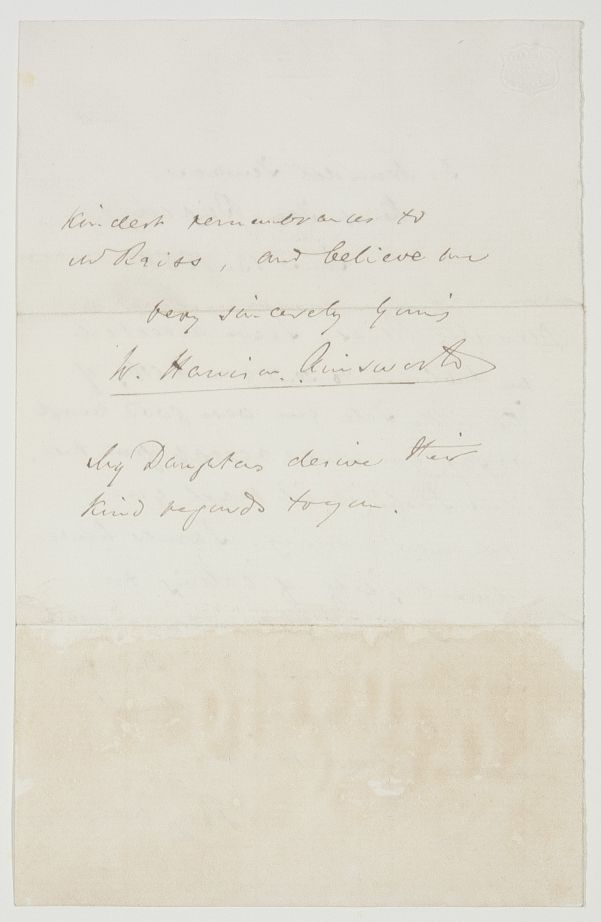 Kindest remembrances to
Mr Reiss, and believe me
very sincerely yours
W. Harrison Ainsworth
My Daughters desire their
kind regards to you.